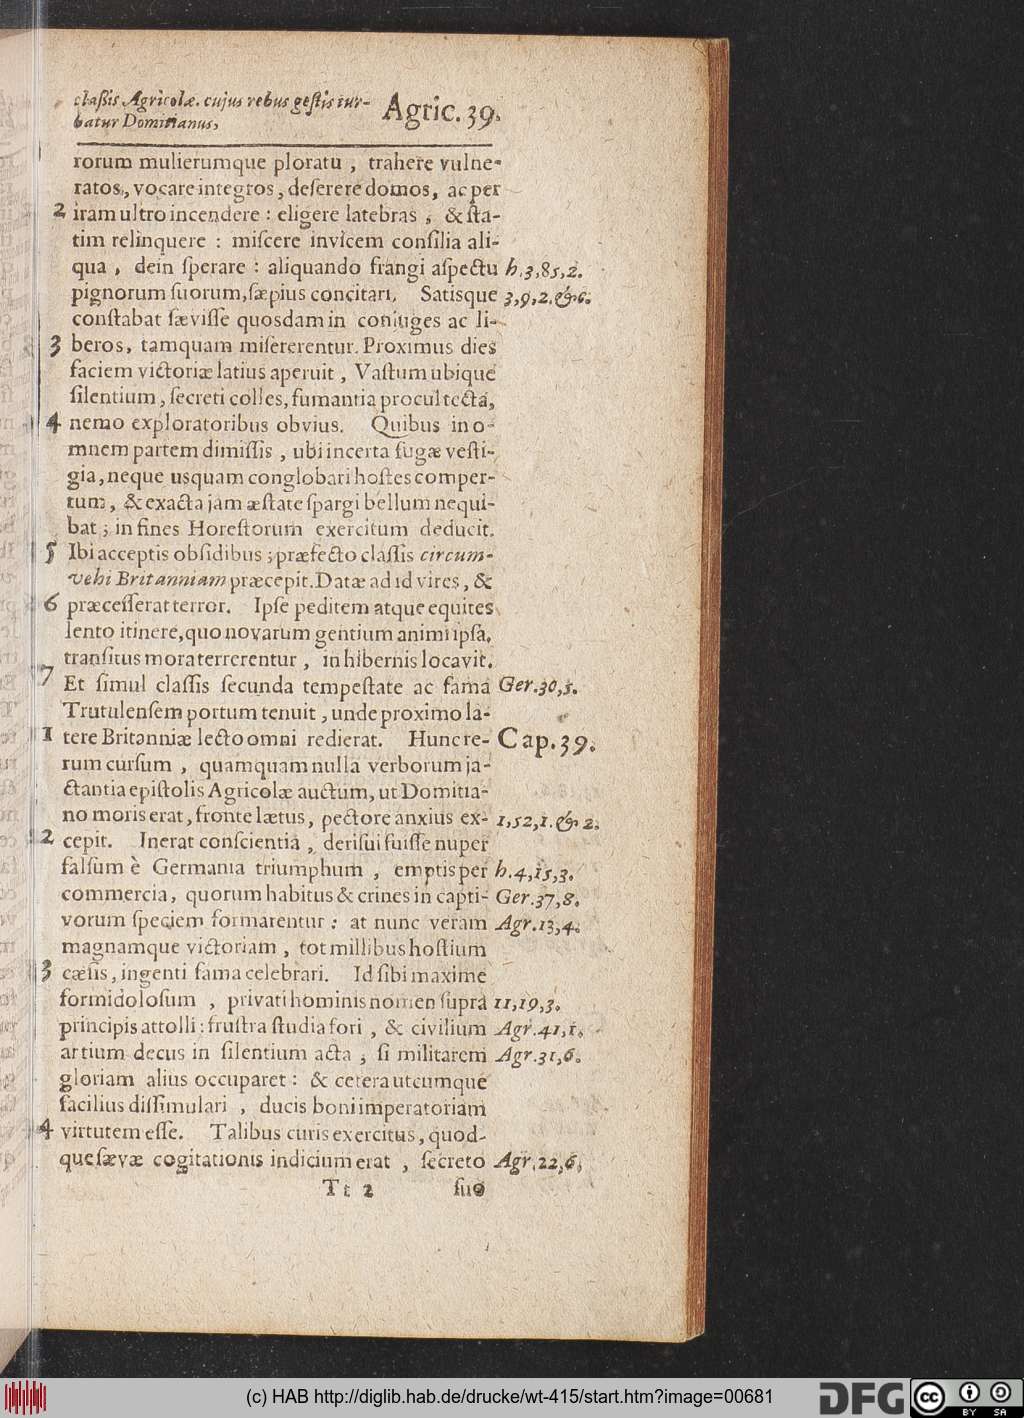 claſſis Agricolæ. cujus rebus geſtis tur-
batur Domitianus,
Agric. 39.
rorum mulierumque ploratu , trahere vulne-
ratos, vocare integros, deſerere domos, ac per
2 iram ultro incendere : eligere latebras , & ſta-
tim relinquere : miſcere invicem conſilia ali-
qua , dein ſperare : aliquando frangi aſpectu h.3,85,2.
pignorum ſuorum, ſæpius concitari. Satisque 3,9,2.&6.
conſtabat ſæviſſe quosdam in coniuges ac li-
3 beros, tamquam miſererentur. Proximus dies
faciem victoriæ latius aperuit , Vaſtum ubique
ſilentium, ſecreti colles, fumantia procul tecta,
4 nemo exploratoribus obvius. Quibus in o-
mnem partem dimiſſis , ubi incerta fugæ veſti-
gia, neque usquam conglobari hoſtes comper-
tum, & exacta jam æſtate ſpargi bellum nequi-
bat ; in fines Horeſtorum exercitum deducit.
5 Ibi acceptis obſidibus ; præfecto claſſis circum-
vehi Britanniam præcepit. Datæ ad id vires, &
6 præceſſerat terror. Ipſe peditem atque equites
lento itinere, quo novarum gentium animi ipſa
transitus mora terrerentur , in hibernis locavit.
7 Et ſimul claſſis ſecunda tempeſtate ac fama Ger.30,5.
Trutulenſem portum tenuit , unde proximo la-
1 tere Britanniæ lecto omni redierat. Hunc re- Cap. 39.
rum curſum , quamquam nulla verborum ja-
ctantia epiſtolis Agricolæ auctum, ut Domitia-
no moris erat, fronte lætus, pectore anxius ex- 1,52,1.&2.
2 cepit. Inerat conſcientia , deriſui fuiſſe nuper
falſum è Germania triumphum , emptis per h.4,15,3.
commercia, quorum habitus & crines in capti- Ger.37,8.
vorum ſpeciem formarentur : at nunc veram Agr.13,4.
magnamque victoriam , tot millibus hoſtium
3 cæſis, ingenti fama celebrari. Id ſibi maxime
formidoloſum , privati hominis nomen ſupra 11,19,3.
principis attolli : fruſtra ſtudia fori , & civilium Agr.41,1.
artium decus in ſilentium acta , ſi militarem Agr.31,6.
gloriam alius occuparet : & cetera utcumque
facilius diſſimulari , ducis boni imperatoriam
4 virtutem eſſe. Talibus curis exercitus, quod-
que ſævæ cogitationis indicium erat , ſecreto Agr.22,6.
Tt 2 ſuo
(c) HAB http://diglib.hab.de/drucke/wt-415/start.htm?image=00681
DFG
cc BY SA